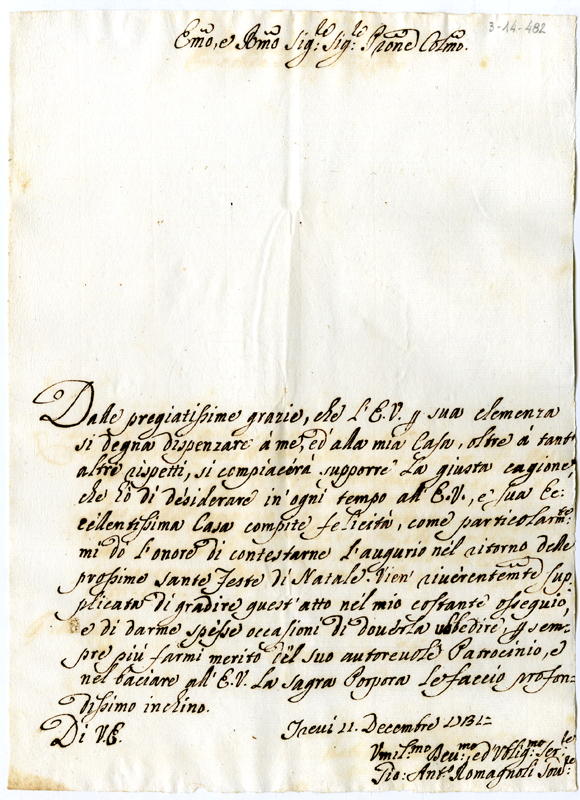 3-14-482
Em̃o, e Rm̃o Sig:re Sig:re Prõne Colm̃o.
Dalle pregiatissime grazie, che l'E.V. p sua clemenza
si degna dispenzare à me, ed' alla mia Casa, oltre à tant'
altri rispetti, si compiacerà supporre la giusta cagione,
che hò di desiderare in' ogni tempo all' E.V., e sua Ec:
cellentissima Casa compite felicità, come particolarm:te
mi dò l'onore di contestarne l'augurio nél ritorno delle
prossime sante Feste di Natale. Vien' riverentem̃te sup
plicata di gradire quest' atto nél mio costante ossequio,
e di darme spésse occasioni di doverla ubbedire, p sem-
pre più farmi merito dél suo autorevole Patrocinio, e
nél baciare all' E.V. la sagra Porpora le faccio profon=
dissimo inchino.
Di V.E.
Trevi 11. Decembre
Vmil:mo Dev:mo, ed Oblig:mo Ser:re
Gio: Ant:o Romagnoli